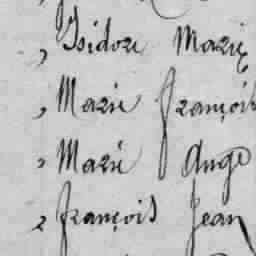 , Isidore Marie
, Marie François
, Marie Ange
, François Jean